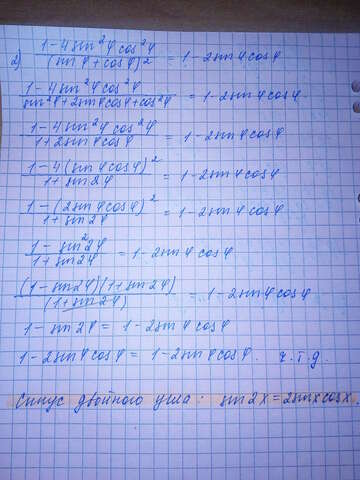 2) (1-4sin²φcos²φ)/(sinφ+cosφ)² = 1-2sinφcosφ
(1-4sin²φcos²φ)/(sin²φ+2sinφcosφ+cos²φ) = 1-2sinφcosφ
(1-4sin²φcos²φ)/(1+2sinφcosφ) = 1-2sinφcosφ
(1-4(sinφcosφ)²)/(1+sin2φ) = 1-2sinφcosφ
(1-(2sinφcosφ)²)/(1+sin2φ) = 1-2sinφcosφ
(1-sin²2φ)/(1+sin2φ) = 1-2sinφcosφ
((1-sin2φ)(1+sin2φ))/(1+sin2φ) = 1-2sinφcosφ
1-sin2φ = 1-2sinφcosφ
1-2sinφcosφ = 1-2sinφcosφ. ч.т.д.
Синус двойного угла: sin2x=2sinxcosx.